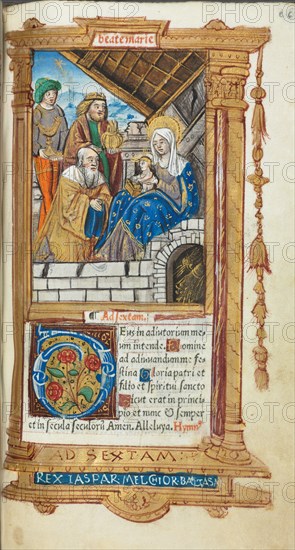 beate marie
Ad sextam.
Deus in adiutorium me
um intende. Domine
ad adiuvandum me fe
stina Gloria patri et
filio et spiritui sancto
Sicut erat in princi
pio et nunc et semper
et in secula seculorū Amen. Alleluya. Hymn⁹
AD SEXTAM
REX IASPAR MELCHIOR BALTASAR